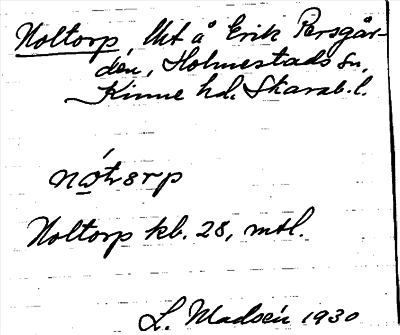 Noltorp, Lht å Erik Persgår-
den, Holmestads sn,
Kinne hd. Skarab. l.
Noltorp kb. 28, mtl.
L. Madsén 1930